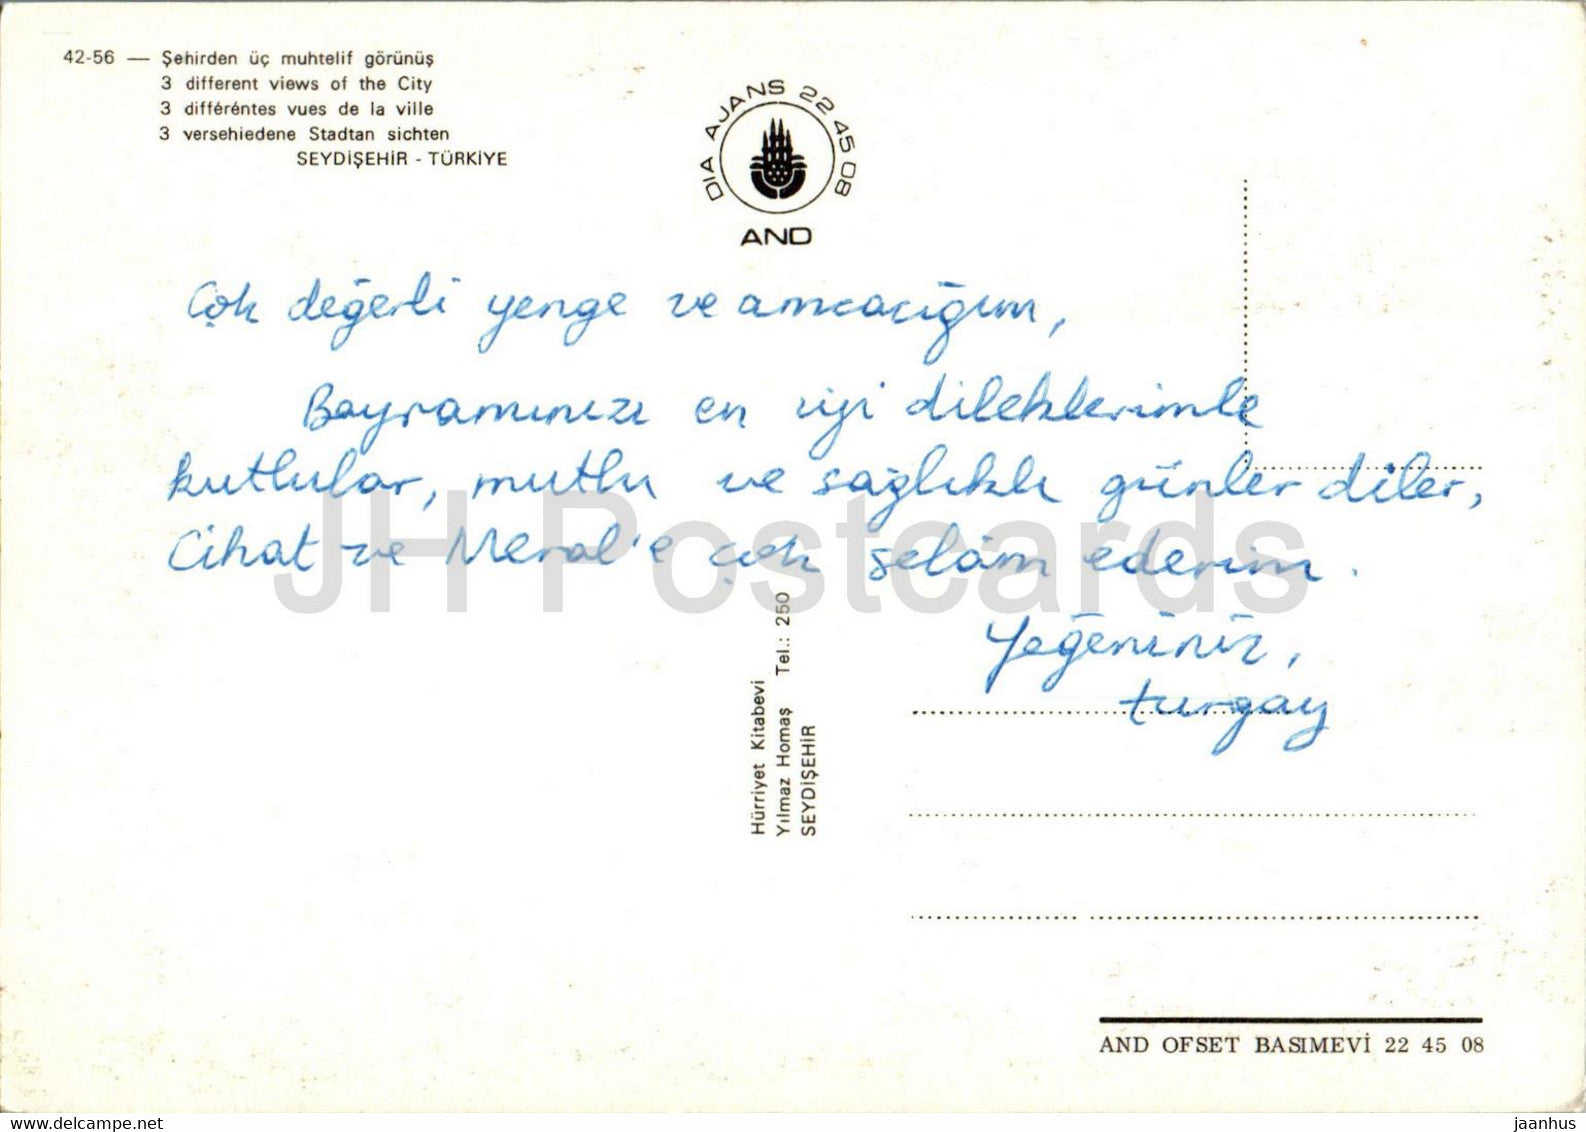 42-56 — Şehirden üç muhtelif görünüş
3 different views of the City
3 différéntes vues de la ville
3 versehiedene Stadtan sichten
SEYDİŞEHİR - TÜRKİYE
DIA AJANS 22 45 08
AND
Çok değerli yenge ve amcacığım,
Bayramınızı en iyi dileklerimle
kutlular, mutlu ve sağlıklı günler diler,
Cihat ve Meral'e çok selâm ederim.
Yeğeniniz,
turgay
JH Postcards
Hürriyet Kitabevi
Yılmaz Homaş Tel.: 250
SEYDİŞEHİR
AND OFSET BASIMEVİ 22 45 08
www.delcampe.net
jaanhus